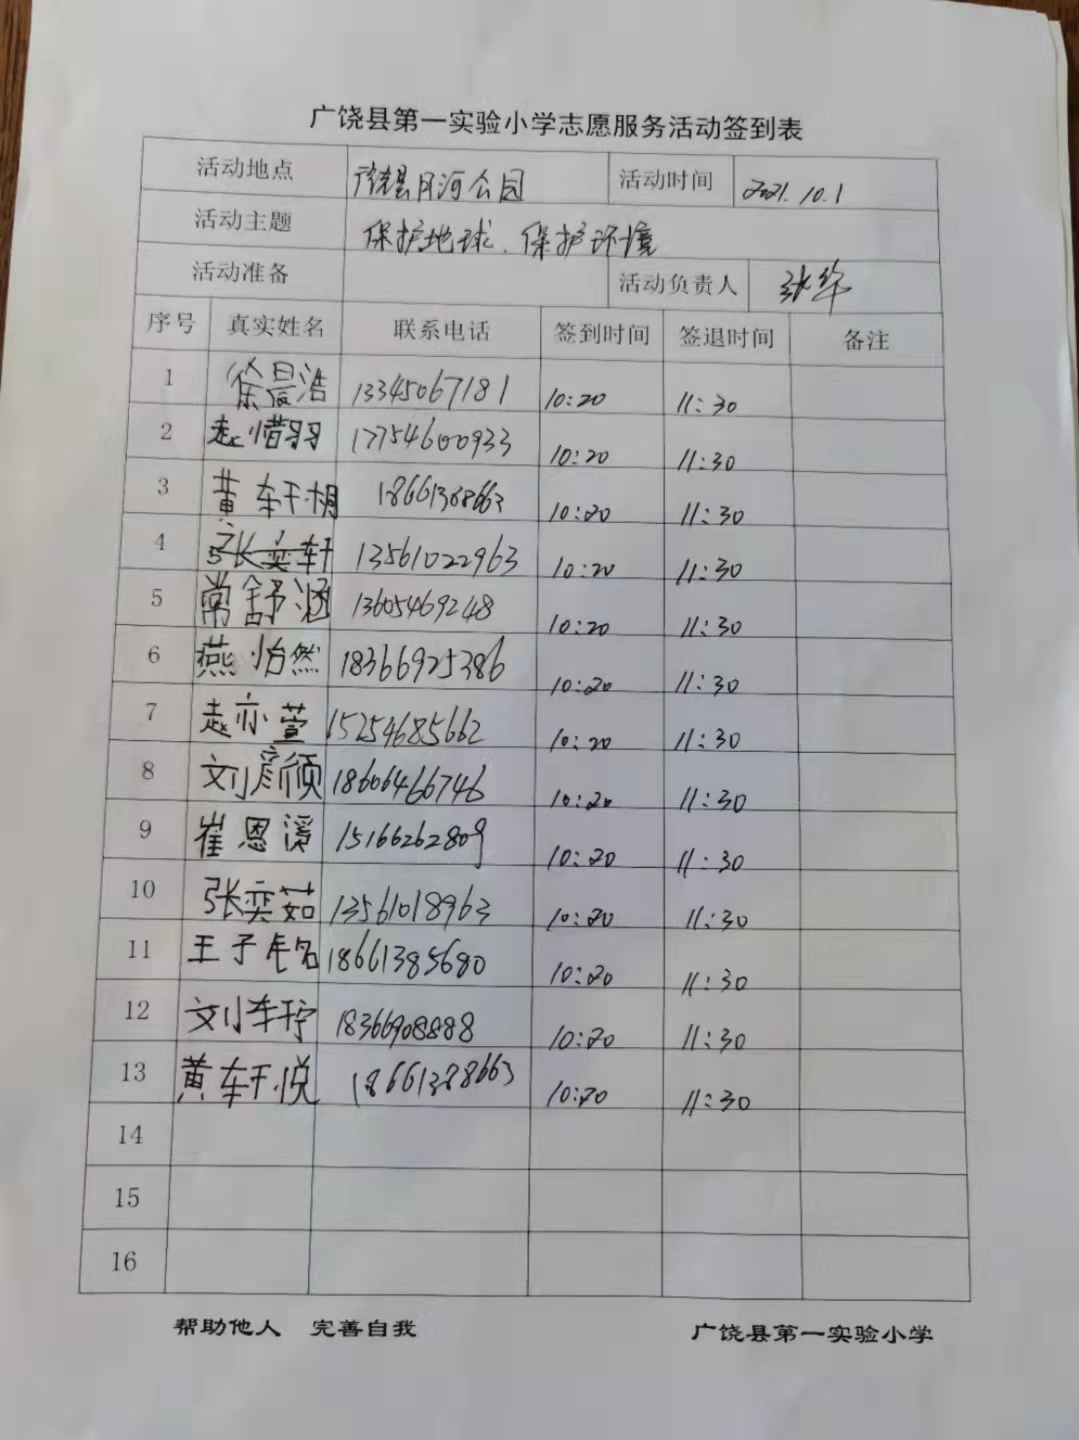 广饶县第一实验小学志愿服务活动签到表
活动地点 广饶县月河公园 活动时间 2021.10.1
活动主题 保护地球、保护环境
活动准备 活动负责人 张华
序号 真实姓名 联系电话 签到时间 签退时间 备注
1 徐晨浩 13345067181 10:20 11:30
2 赵惜羽 17754600933 10:20 11:30
3 黄轩 18661388663 10:20 11:30
4 张奕轩 13561022963 10:20 11:30
5 常舒涵 13605469248 10:20 11:30
6 燕怡然 18366925386 10:20 11:30
7 赵亦萱 15254685662 10:20 11:30
8 刘颜 18606466746 10:20 11:30
9 崔恩溪 15166262809 10:20 11:30
10 张奕茹 13561018963 10:20 11:30
11 王子 18661385680 10:20 11:30
12 刘轩宁 18366908888 10:20 11:30
13 黄轩悦 18661388663 10:20 11:30
14
15
16
帮助他人 完善自我 广饶县第一实验小学